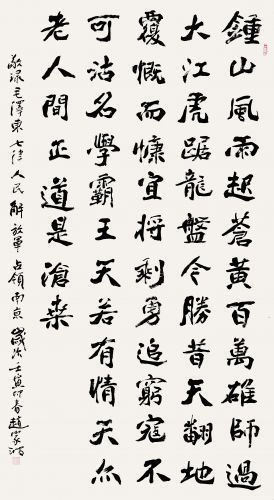 鍾山風雨起蒼黃百萬雄師過
大江虎踞龍盤今勝昔天翻地
覆慨而慷宜將剩勇追窮寇不
可沽名學霸王天若有情天亦
老人間正道是滄桑
敬录毛澤東七律人民解放軍占領南京歲次壬寅仲春趙家